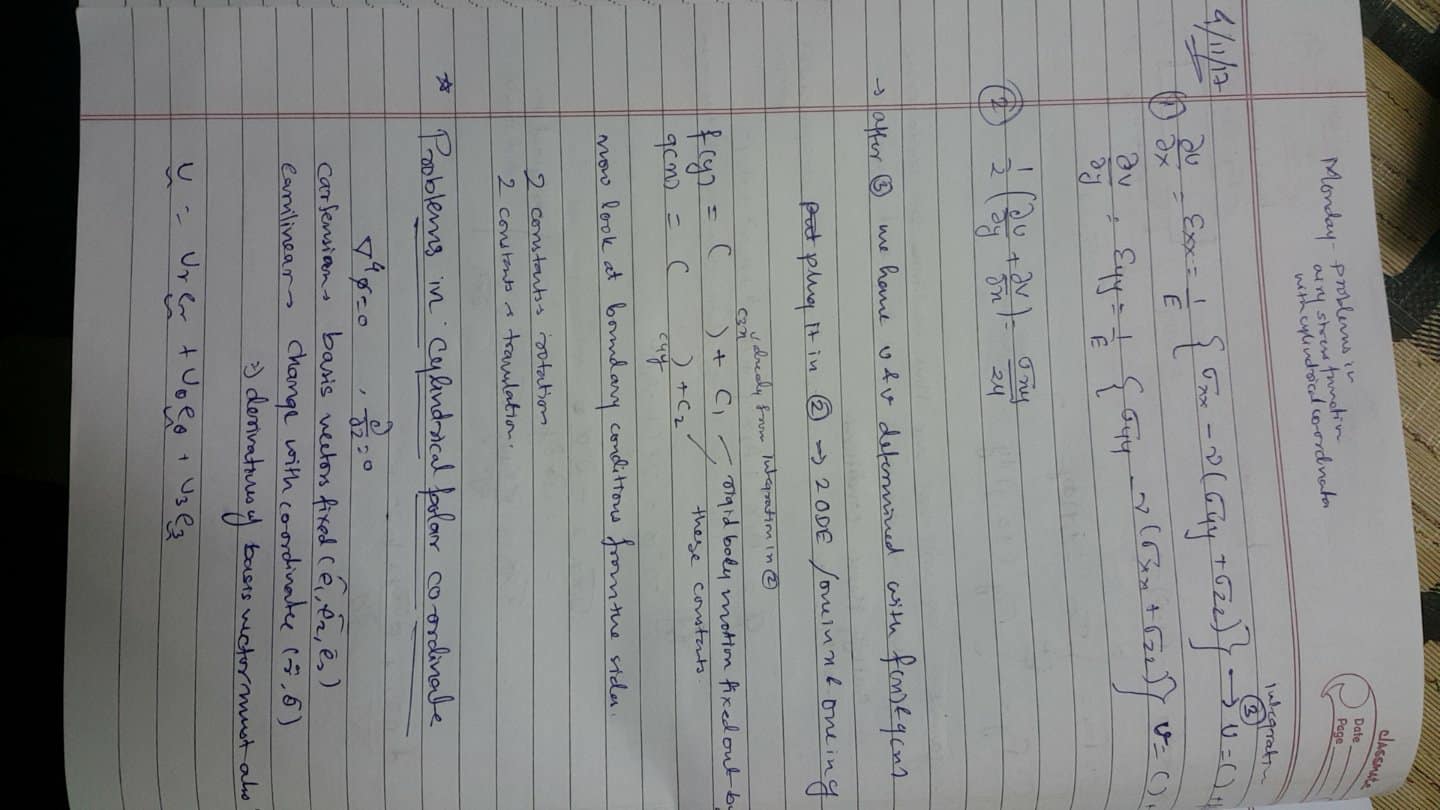 classmate
Date
Page
Monday - problems in
airy stress function
with cylindrical co-ordinate
4/11/17
Integration
① ∂u/∂x = εxx = 1/E { σxx - ν(σyy + σzz) } → ③ u = ( ) +
∂v/∂y = εyy = 1/E { σyy - ν(σxx + σzz) } v = ( )
② 1/2 (∂u/∂y + ∂v/∂x) = σxy/2μ
→ after ③ we have u & v determined with f(x) & g(x)
put plug it in ② → 2 ODE / one in x & one in y
already from Integration in ②
f(y) = ( c3x ) + C1 - rigid body motion fixed out by
g(x) = ( c4y ) + C2 these constants.
now look at boundary conditions from the sides.
2 constants → rotation
2 constants → translation.
☆ Problems in cylindrical polar co-ordinate
∇⁴φ=0 , ∂/∂z=0
cartensian → basis vectors fixed (e1, e2, e3)
change with coordinates
⇒ derivatives of basis vector must also
u = ur er + uθ eθ + u3 e3